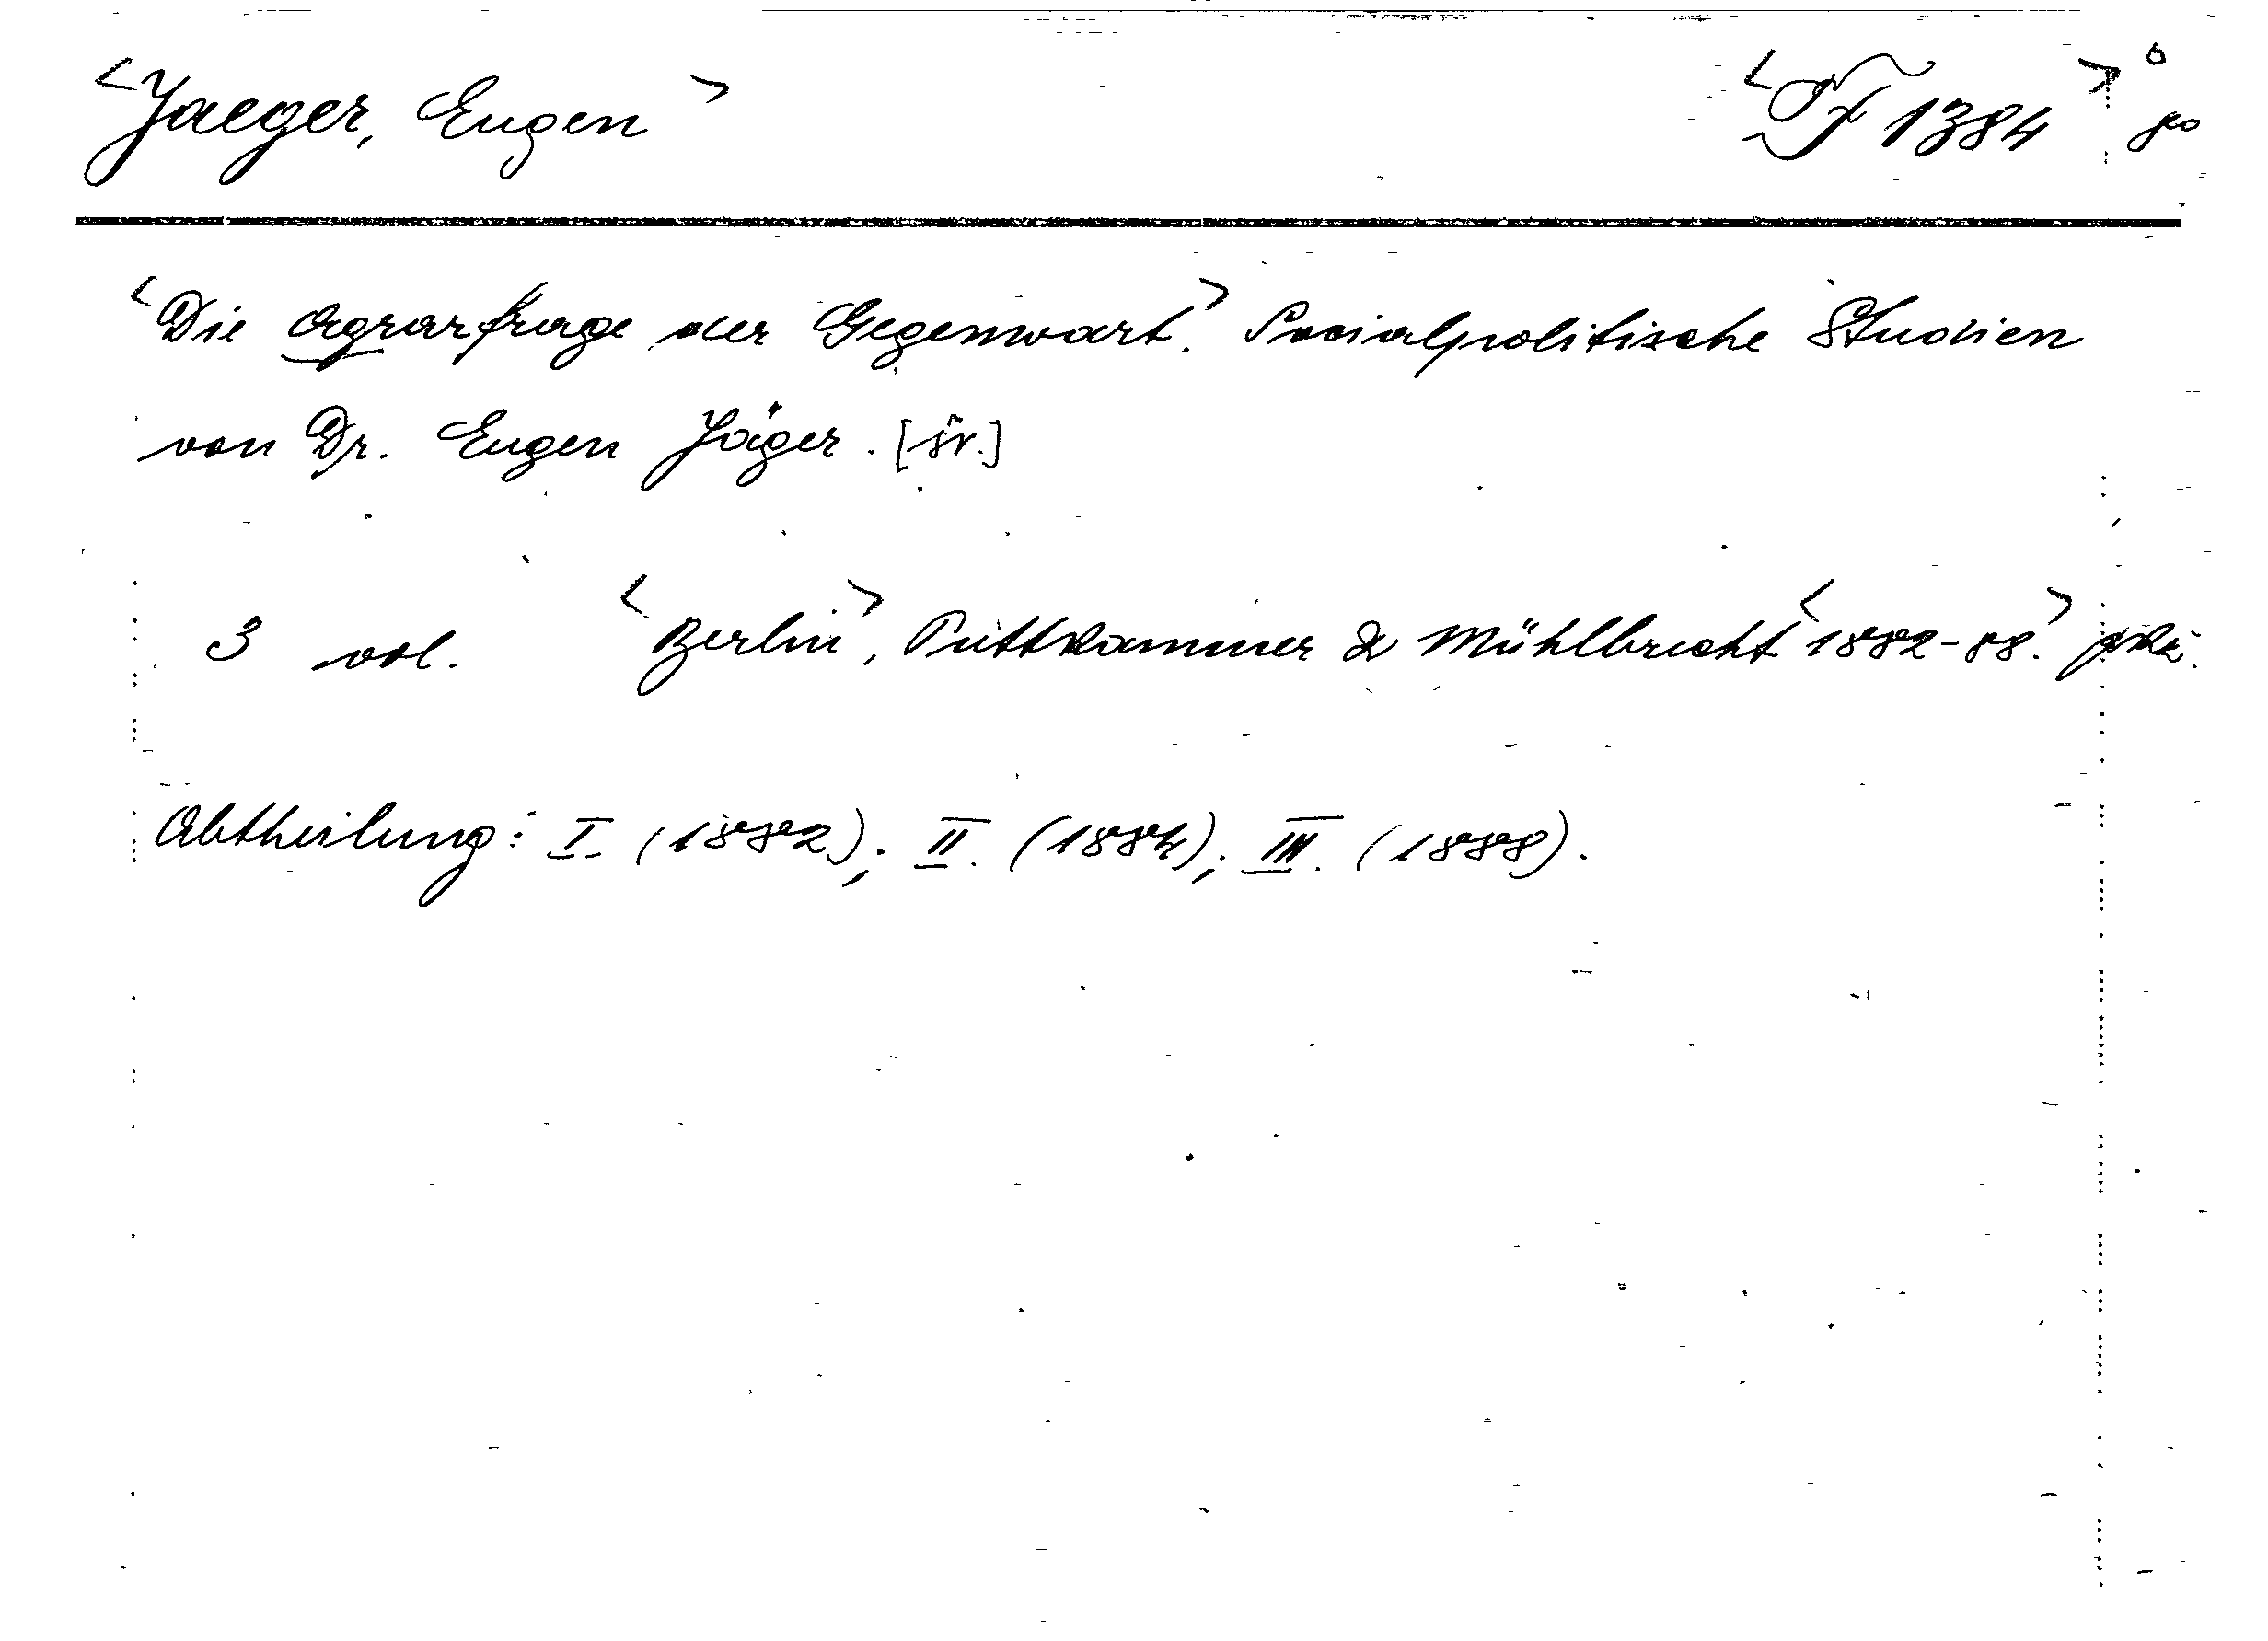 <Jaeger, Eugen> <Tf 1384>
<Die Agrarfrage der Gegenwart.> Socialpolitische Studien
von Dr. Eugen Jäger. [sr.]
3 vol. <Berlin>, Puttkammer & Mühlbrecht <1882-88.>
Abtheilung: I. (1882); II. (1884); III. (1888).